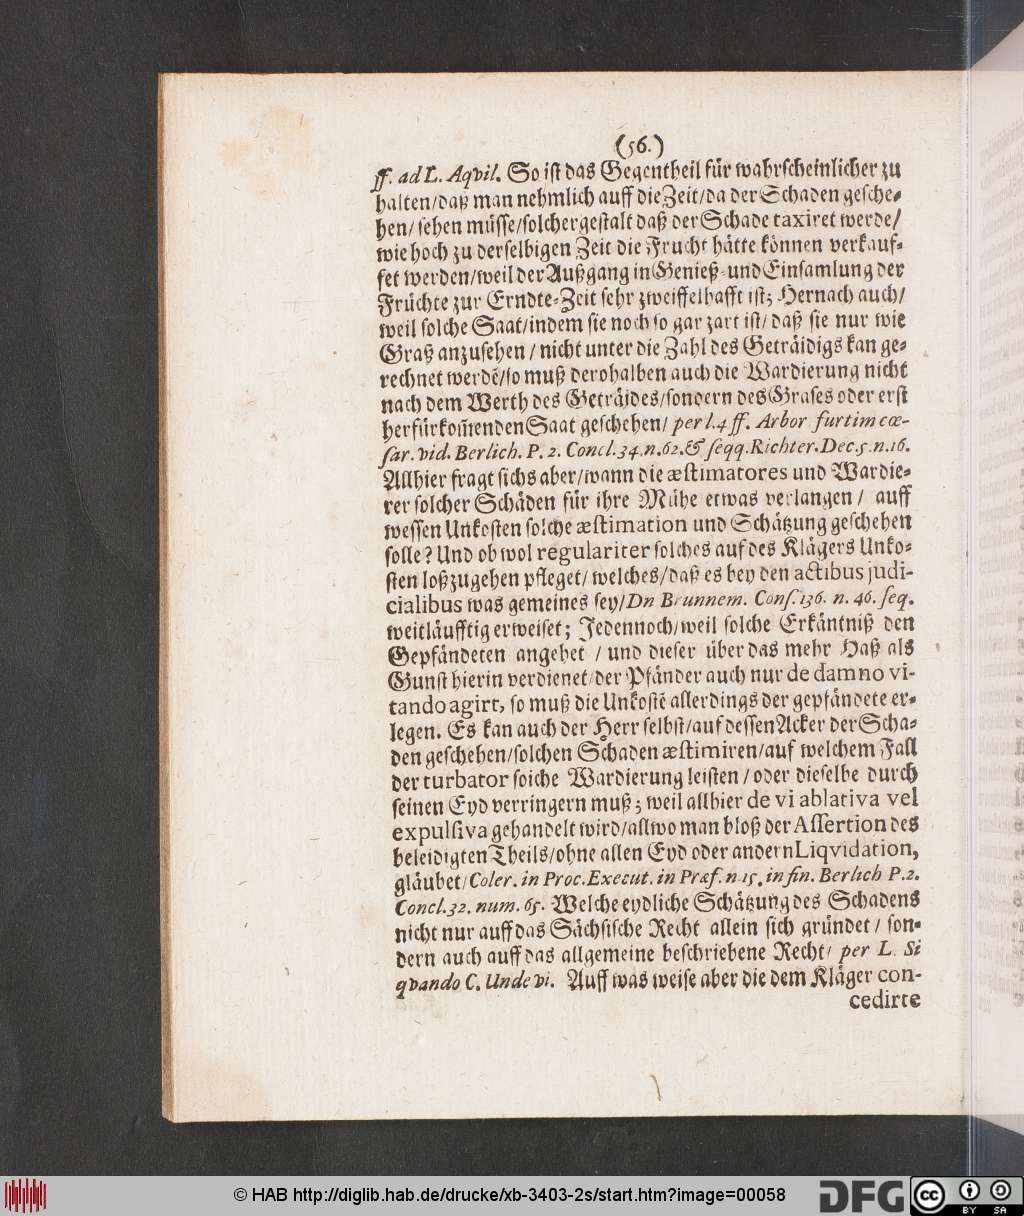 (56.)
ff. ad L. Aqvil. So ist das Gegentheil für wahrscheinlicher zu
halten/daß man nehmlich auff die Zeit/da der Schaden gesche-
hen/ sehen müsse/solchergestalt daß der Schade taxiret werde/
wie hoch zu derselbigen Zeit die Frucht hätte können verkauf-
fet werden/weil der Außgang in Genieß-und Einsamlung der
Früchte zur Erndte-Zeit sehr zweiffelhafft ist; Hernach auch/
weil solche Saat/indem sie noch so gar zart ist/ daß sie nur wie
Graß anzusehen / nicht unter die Zahl des Geträidigs kan ge-
rechnet werdē/so muß derohalben auch die Wardierung nicht
nach dem Werth des Geträides/sondern des Grases oder erst
herfürkom̃enden Saat geschehen/ per l.4 ff. Arbor furtim cæ-
sar. vid. Berlich. P. 2. Concl.34.n.62.& seqq.Richter.Dec.5.n.16.
Allhier fragt sichs aber/wann die æstimatores und Wardie-
rer solcher Schäden für ihre Mühe etwas verlangen / auff
wessen Unkosten solche æstimation und Schätzung geschehen
solle? Und ob wol regulariter solches auf des Klägers Unko-
sten loßzugehen pfleget/ welches/daß es bey den actibus judi-
cialibus was gemeines sey/Dn Brunnem. Cons.136. n. 46. seq.
weitläufftig erweiset; Jedennoch/weil solche Erkäntniß den
Gepfändeten angehet / und dieser über das mehr Haß als
Gunst hierin verdienet/der Pfänder auch nur de damno vi-
tando agirt, so muß die Unkostē allerdings der gepfändete er-
legen. Es kan auch der Herr selbst/auf dessen Acker der Scha-
den geschehen/solchen Schaden æstimiren/auf welchem Fall
der turbator solche Wardierung leisten / oder dieselbe durch
seinen Eyd verringern muß; weil allhier de vi ablativa vel
expulsiva gehandelt wird/allwo man bloß der Assertion des
beleidigten Theils/ohne allen Eyd oder andern Liqvidation,
gläubet/Coler. in Proc.Execut. in Præf. n.15. in fin. Berlich P.2.
Concl.32. num. 65. Welche eydliche Schätzung des Schadens
nicht nur auff das Sächsische Recht allein sich gründet / son-
dern auch auff das allgemeine beschriebene Recht/ per L. Si
qvando C. Unde vi. Auff was weise aber die dem Kläger con-
cedirte
© HAB http://diglib.hab.de/drucke/xb-3403-2s/start.htm?image=00058
DFG
cc
BY SA